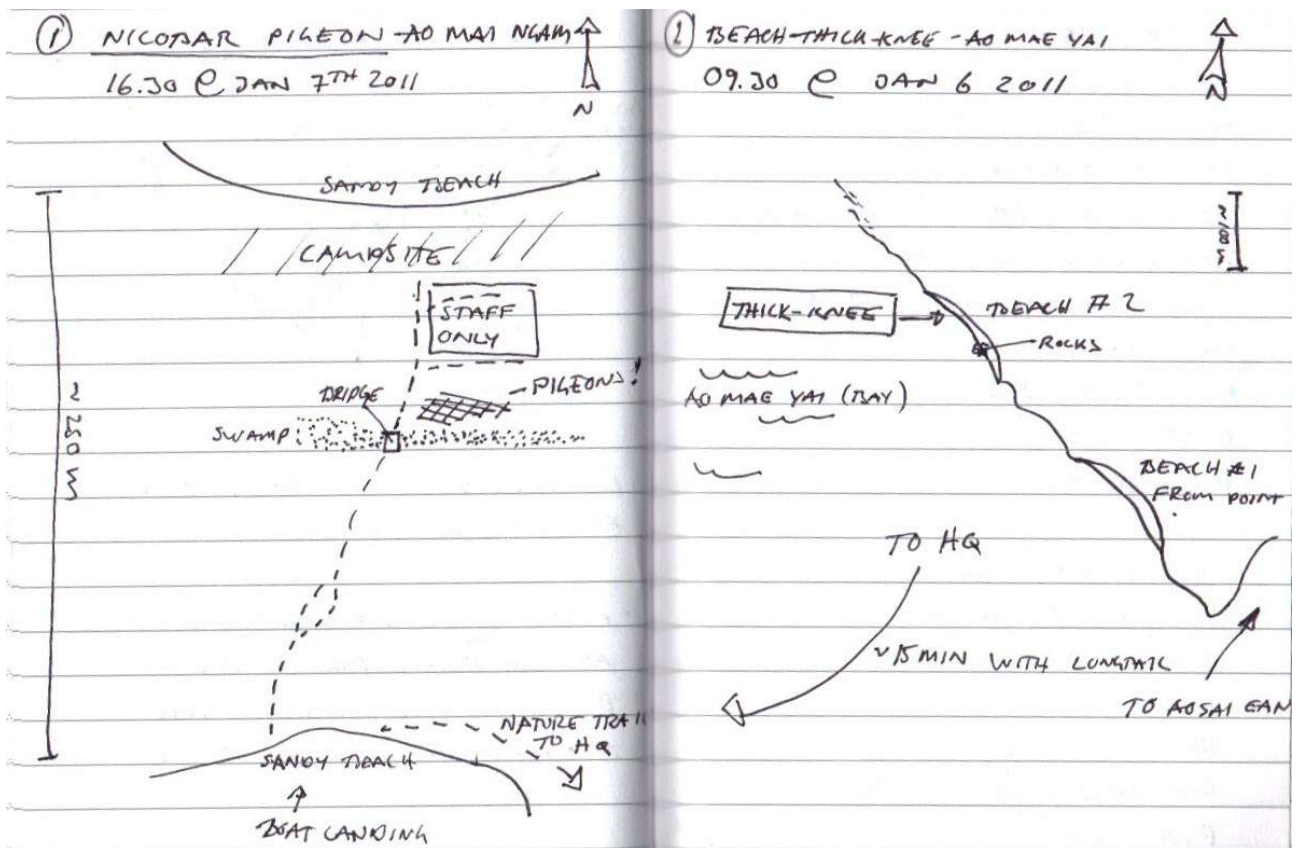 ① NICOBAR PIGEON - AO MAI NGAM
16.30 @ JAN 7TH 2011
N
SANDY BEACH
CAMPSITE
STAFF
ONLY
PIGEONS!
BRIDGE
SWAMP
~ 250 m
NATURE TRAIL
TO HQ
SANDY BEACH
BOAT LANDING
② BEACH-THICK-KNEE - AO MAE YAI
09.30 @ JAN 6 2011
N
~100 m
THICK-KNEE
BEACH # 2
ROCKS
AO MAE YAI (BAY)
BEACH #1
FROM POINT
TO HQ
~15 MIN WITH LONGTAIL
TO AO SAI EAN